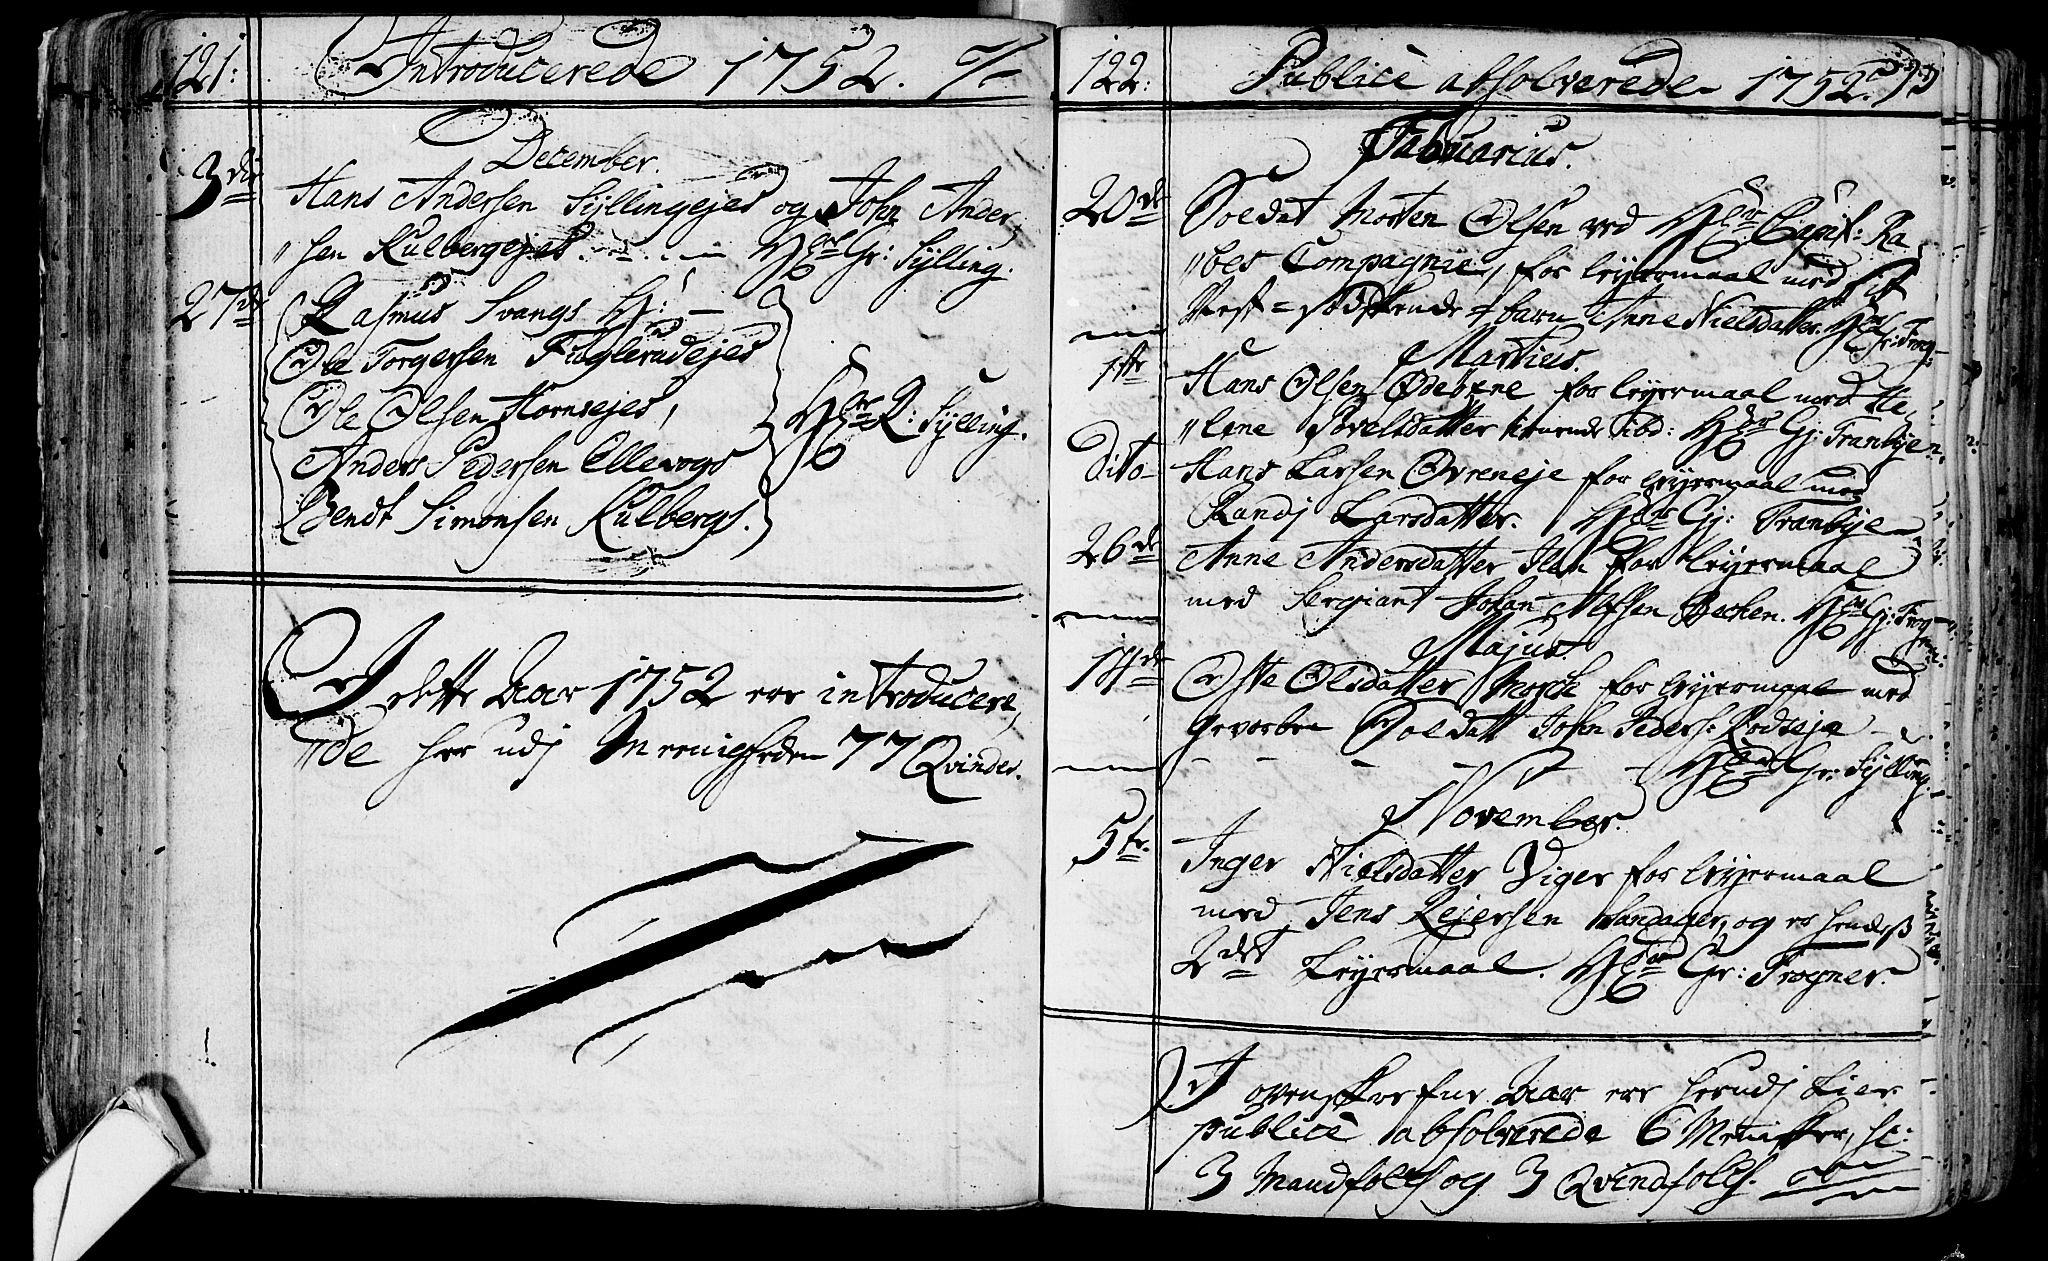 121.
Introducerede 1752. %
December.
3die Hans Andersen Syllingejes og John Ander,
"sen Kulbergejes Hr Gr: Sylling.
27de Rasmus Svangs H:
Ole Torgersen Fuglerudejes
Ole Olsen Hornsejes,
Anders Pedersen Ellevogs
Hr R: Sylling.
Bendt Simonsen Kulbergs.
I dette Aar 1752 ere introducere,
"de her udj Meenigheden 77 Qvinder.
122.
Publicè absolverede 1752.
Februarius.
20de Soldat Morten Olsen ved Hr Capit: Ra,
"bes Compagnie, for leyermaal med sit
Nest-sødskende barn Anne Nielsdatter.
Martius.
1ste Hans Olsen Ødevene for leyermaal med He,
"lene Povelsdatter ibd: Gj: Tranbyen.
dito Hans Larsen Øvreneje for leyermaal med
Randj Larsdatter. Gj: Tranbye
26de Anne Andersdatter for leyermaal
med Sergiant Johan Becken.
Majus.
14de Olsdatter for leyermaal med
Gevorben Soldatt John Peders:
Gr: Sylling.
November.
5te Inger Nielsdatter Viger for leyermaal
med Jens Rejersen Sandager, og er hendeß
2det Leyermaal. Gr: Trogner.
I ovenskrefne Aar ere herudj Lier
publicè absolverede 6 Mennisker, sc:
3 Mandfolk og 3 Qvindfolk.